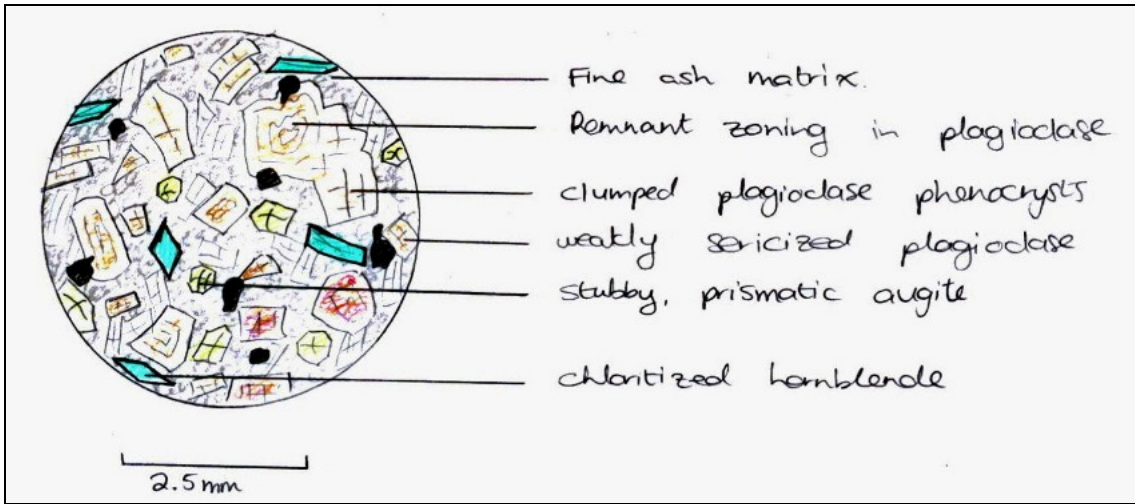 Fine ash matrix.
Remnant zoning in plagioclase
clumped plagioclase phenocrysts
weakly sericized plagioclase
stubby, prismatic augite
chloritized hornblende
2.5mm